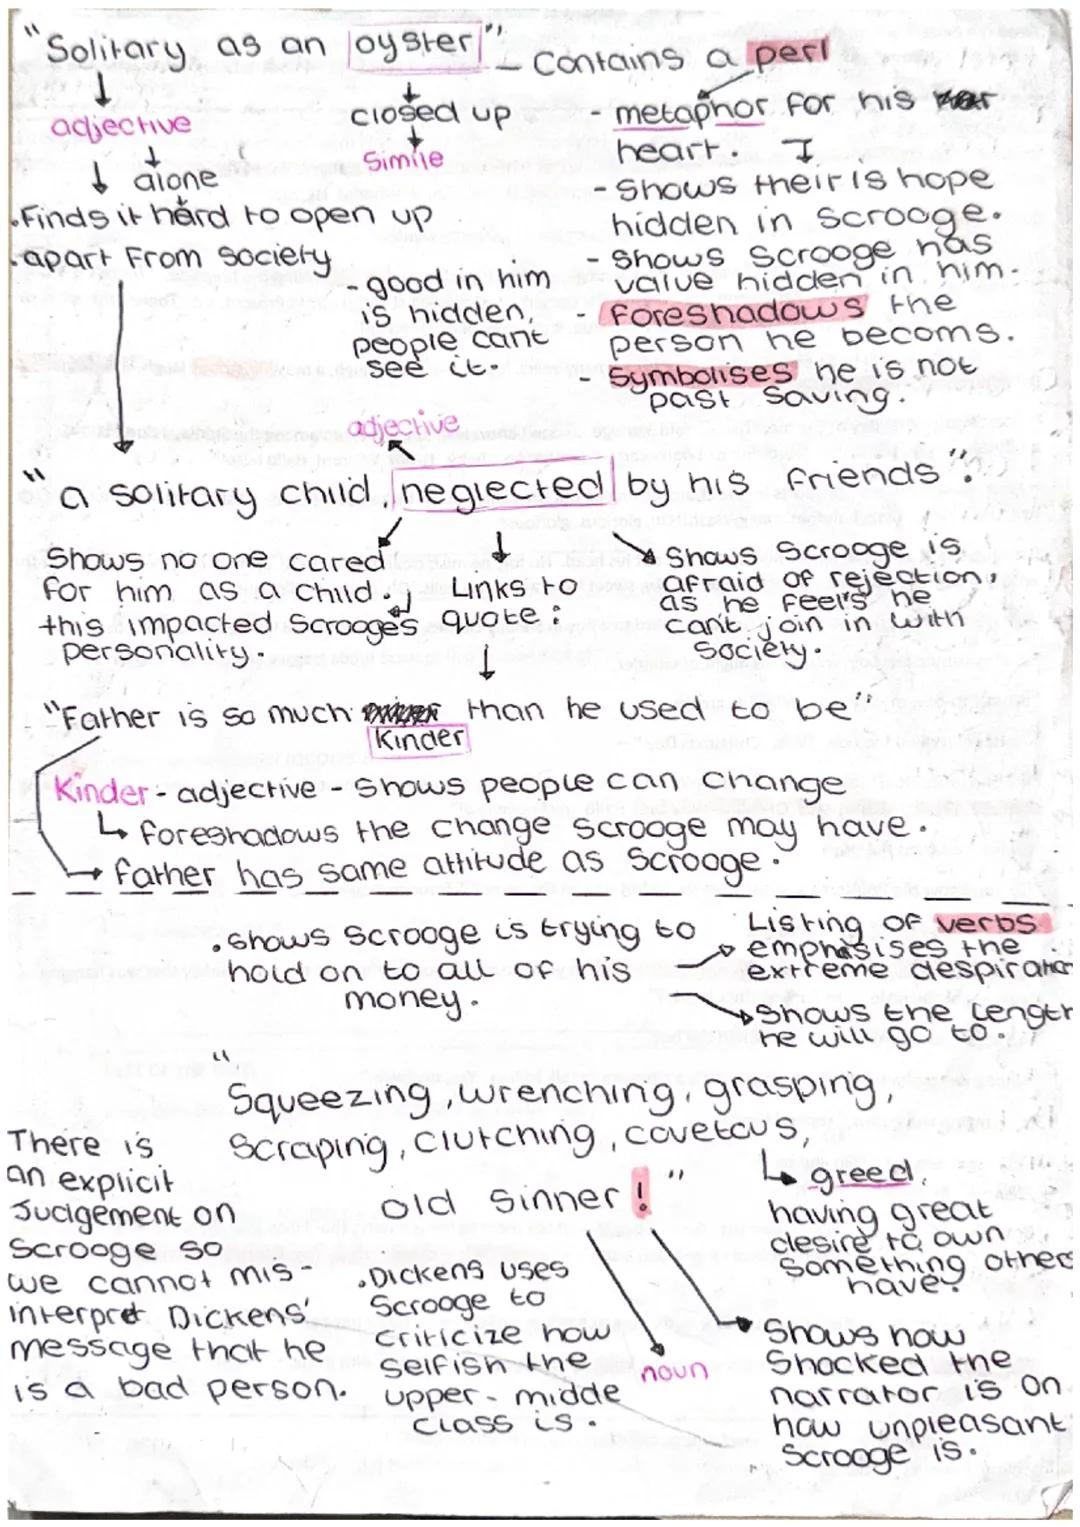 "Solitary as an oyster" - Contains a perl
adjective
alone
closed up
Simile
- metaphor for his
heart.
- Shows their is hope
hidden in Scrooge.
- Shows Scrooge has
value hidden in him.
- Foreshadows the
person he becoms.
- Symbolises he is not
past saving.
• Finds it hard to open up
• apart from society
- good in him
is hidden,
people cant
see it.
adjective
"a solitary child, neglected by his friends".
Shows no one cared
for him as a child.
this impacted Scrooges
personality.
Links to
quote:
Shows Scrooge is
afraid of rejection,
as he feels he
cant join in with
Society.
"Father is so much than he used to be"
Kinder
Kinder - adjective - Shows people can change
foreshadows the change Scrooge may have.
father has same attitude as Scrooge.
• shows Scrooge is trying to
hold on to all of his
money.
Listing of verbs
emphasises the
extreme
Shows the length
he will go to.
"Squeezing, wrenching, grasping,
Scraping, Clutching, covetous,
old sinner!"
There is
an explicit
Judgement on
Scrooge so
we cannot mis-
interpret Dickens'
message that he
is a bad person.
• Dickens uses
Scrooge to
criticize how
selfish the
upper-midde
class is.
noun
greed.
having great
desire to own
something others
have.
Shows how
Shocked the
narrator is on
how unpleasant
Scrooge is.